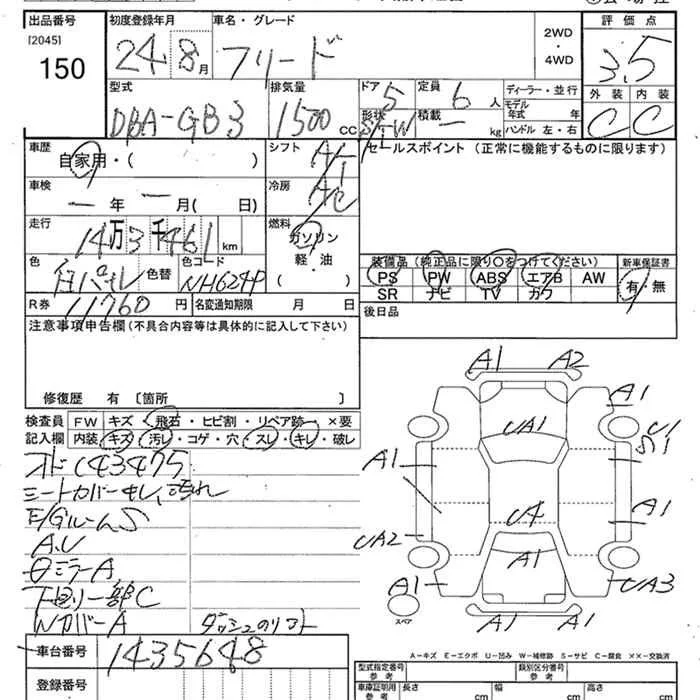 出品番号 初度登録年月 車名・グレード 評価点
[2045]
150 24 8月 フリード 2WD・4WD 3.5
型式 排気量 ドア 5 定員 6人 ディーラー・並行 外装 内装
DBA-GB3 1500 CC 形状 S/W 積載 ー kg モデル年式 年 C C
ハンドル 左・右
車歴 シフト AT セールスポイント (正常に機能するものに限ります)
自家用・( )
車検 冷房 A/C
ー年 ー月( 日)
走行 燃料
14万3千461km ガソリン
色 色替 色コード 軽・油 装備品 (純正品に限り○をつけてください) 新車保証書
NH624P ( ) PS PW ABS エアB AW 有・無
R券 11760円 名変通知期限 月 日 SR ナビ TV カワ
注意事項申告欄 (不具合内容等は具体的に記入して下さい) 後日品
修復歴 有 〔箇所 〕
検査員 FW キズ・飛石・ヒビ割・リペア跡 ×要
記入欄 内装 キズ・汚レ・コゲ・穴・スレ・キレ・破レ
143475
シートカバーキレ、汚れ
E/GルームS
A.U
ミラーA
下回り一部C
NカバーA
車台番号 1435648
登録番号
A1 A2
A1
UA1 U1
S1
A1
A1
UA2
A1
A1 UA3
スペア A1 A1
A-キズ E-エクボ U-凹み W-補修跡 S-サビ C-腐食 ××-交換済
型式指定番号 参考 類別区分番号 参考
車庫証明用 参考 長さ cm 幅 cm 高さ cm